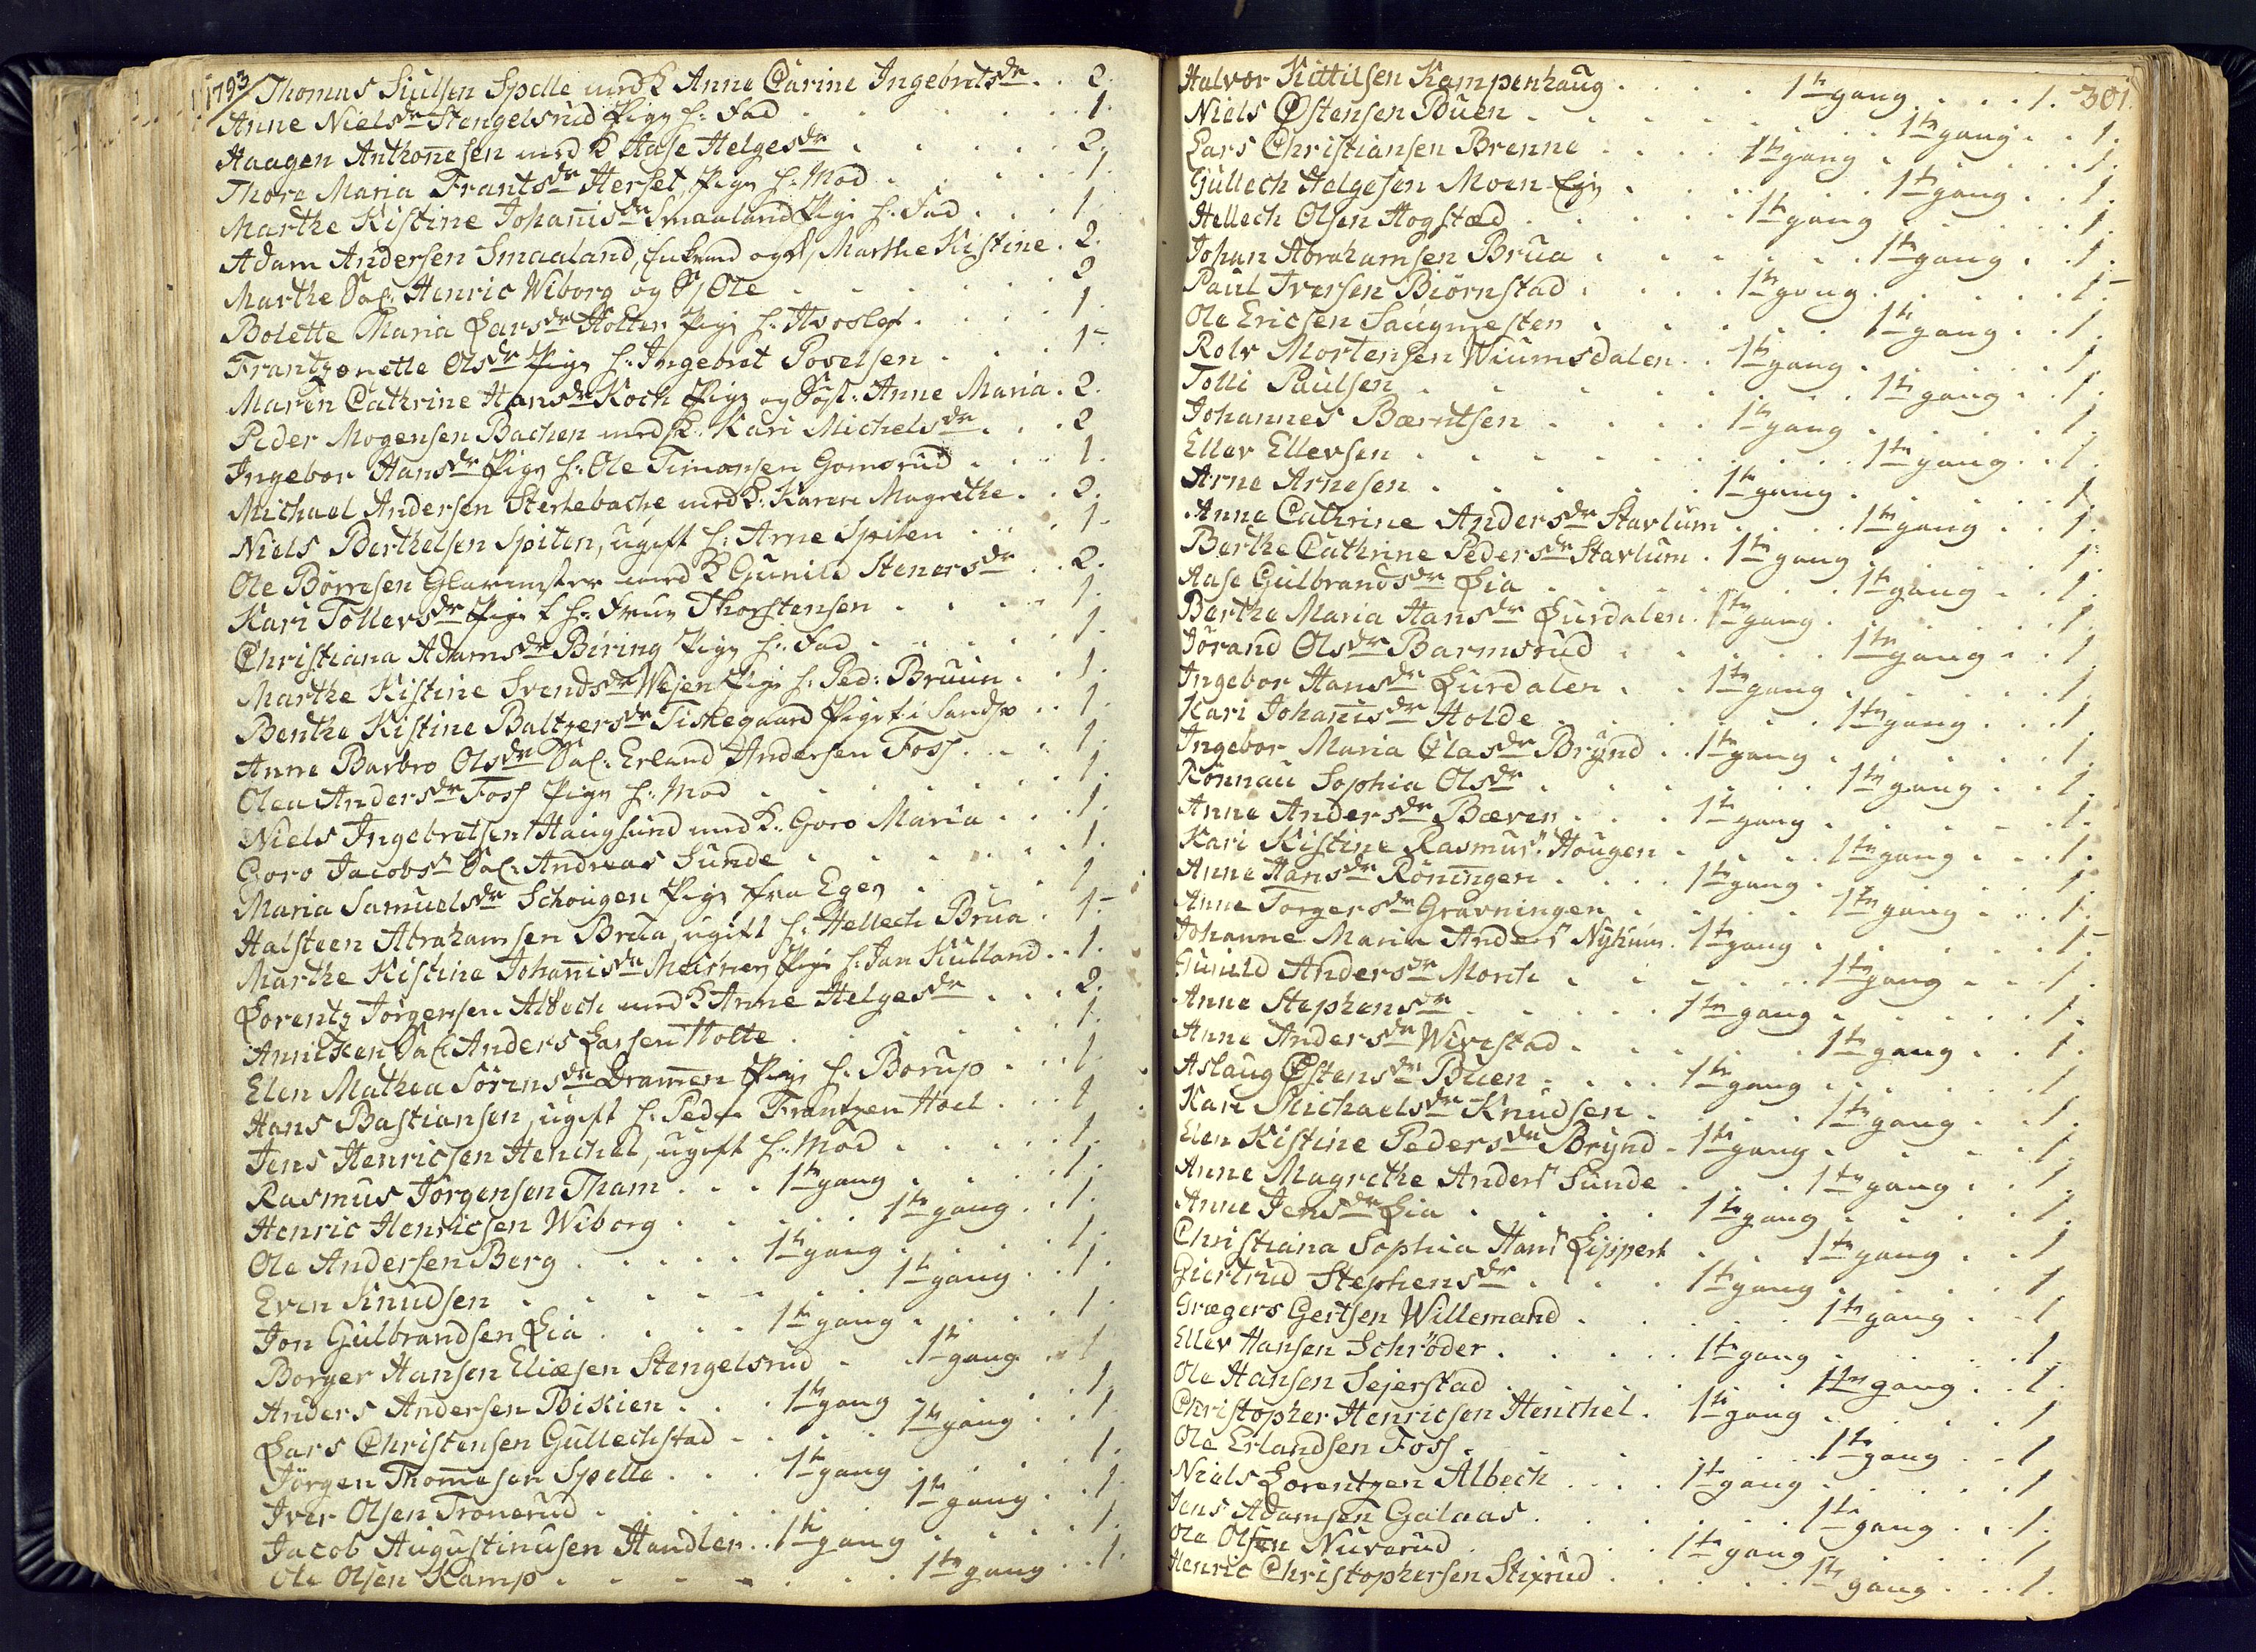 1793
Thomus Siulsen Spelle med K Anne Carine Ingebretsdr . . 2.
Anne Nielsdr Stengelsrud Pige h: Fad . . . 1.
Haagen Anthonesen med K Aase Helgesdr . . . 2.
Thore Maria Frantsdr Herset Pige h: Mod . . . 1.
Marthe Kistine Johañisdr Smaaland Pige h: Fad . . . 1.
Adam Andersen Smaaland, Enkemd og Marthe Kistine . 2.
Marthe Sal: Henric Wiborg og Ole . . . 2
Bolette Maria Larsdr Holter Pige h: Hvoslef . . . 1.
Frantzonette Olsdr Pige h: Ingebret Povelsen . . . 1.
Maren Cathrine Hansdr Koch Pige og Søst: Anne Maria . 2.
Peder Mogensen Bachen med K: Kari Michelsdr . . . 2
Ingebor Hansdr Pige h: Ole Timansen Gomsrud . . . 1.
Michael Andersen Sterkebache med K. Karen Magrethe . . 2.
Niels Berthelsen Spiten, ugift h: Arne Spiten . . . 1.
Ole Börresen Glarmester med K Gunild Stenersdr . . 2.
Kari Tollevsdr Pige h: Frue Thorstensen . . . 1.
Christiana Adamsdr Biring Pige h: Fad . . . 1.
Marthe Kistine Svendsdr Wejen Pige h: Ped: Bruun . . 1.
Benthe Kistine Baltzersdr Fiskegaard Pige f. i Sandsv . . 1.
Anne Barbro Olsdr Sal: Erland Andersen Foss . . . 1.
Olea Andersdr Foss Pige h: Mod . . . 1.
Niels Ingebretsen Haugsund med K. Goro Maria . . . 1.
Goro Jacobsdr Sal: Andreas Sunde . . . 1.
Maria Samuelsdr Schougen Pige fra Eger . . . 1
Halsteen Abrahamsen Brua, ugift h: Hellech Brua . 1.
Marthe Kistine Johañisdr Meisner Pige h: Jan Kulland . . 1.
Lorentz Jörgensen Albech med K Anne Helgesdr . . . 2.
Anniken Sal: Anders Larsen Holte . . . 1.
Elen Mathea Sörensdr Dramen Pige h: Borup . . . 1.
Hans Bastiansen, ugift h: Peder Frantzen Hoel . . . 1
Jens Henricsen Henchel, ugift h: Mod . . . 1.
Rasmus Jörgensen Tham . . . 1te gang . . . 1.
Henric Henricsen Wiborg . . . 1te gang . . 1.
Ole Andersen Berg . . . 1te gang . . . 1.
Even Knudsen . . . 1te gang . . 1.
Jon Gulbrandsen Lia . . . 1te gang . . . 1.
Borger Hansen Eliæsen Stengelsrud . . 1te gang . . 1
Anders Andersen Bikien . . . 1te gang . . . 1.
Lars Christensen Gullechstad . . . 1te gang . . . 1.
Jörgen Thomesen Spelle . . . 1te gang . . . 1.
Iver Olsen Tronerud . . . 1te gang . . 1.
Jacob Augustinusen Handler . . 1te gang . . . 1.
Ole Olsen Kamp . . . 1te gang . . 1.
301.
Halvor Kittilsen Kampenhaug . . . 1te gang . . . 1.
Niels Östensen Buen . . . 1te gang . . 1.
Lars Christiansen Brenne . . . 1te gang . . . 1.
Gullech Helgesen Moen . . . 1te gang . . 1.
Hellech Olsen Hogstad . . . 1te gang . . . 1.
Johan Abrahamsen Brua . . . 1te gang . . 1.
Paul Iversen Biörnstad . . . 1te gang . . . 1.
Ole Ericsen Saugmesten . . . 1te gang . . 1.
Rolv Mortensen Wiumsdalen . . 1te gang . . . 1.
Tolli Paulsen . . . 1te gang . . 1.
Johannes Bærntsen . . . 1te gang . . . 1.
Ellev Ellevsen . . . 1te gang . . 1.
Arne Arnesen . . . 1te gang . . . 1.
Anne Cathrine Andersdr Stavlum . . . 1te gang . . 1.
Berthe Cathrine Pedersdr Stavlum . 1te gang . . . 1.
Aase Gulbrandsdr Lia . . . 1te gang . . 1.
Berthe Maria Hansdr Lurdalen . 1te gang . . . 1.
Jörand Olsdr Barmsrud . . . 1te gang . . 1
Ingebor Hansdr Lurdalen . . 1te gang . . . 1.
Kari Johañisdr Holde . . . 1te gang . . . 1
Ingebor Maria Clasdr Brynd . . 1te gang . . . 1.
Rönnau Sophia Olsdr . . . 1te gang . . 1.
Anne Andersdr Bæver . . . 1te gang . . . 1.
Kari Kistine Rasmusdr Hougen . . . 1te gang . . . 1.
Anne Hansdr Röningen . . . 1te gang . . . 1.
Anne Torgersdr Gravningen . . . 1te gang . . . 1.
Johanne Maria Andersdr Nyhuus . 1te gang . . . 1.
Gunild Andersdr Morch . . . 1te gang . . . 1.
Anne Stephensdr . . . 1te gang . . . 1.
Anne Andersdr Wivestad . . . 1te gang . . 1.
Aslaug Östensdr Buen . . . 1te gang . . . 1
Kari Michaelsdr Knudsen . . . 1te gang . . 1.
Elen Kistine Pedersdr Brynd . 1te gang . . . 1.
Anne Magrethe Andersdr Sunde . . . 1te gang . . 1.
Anne Jensdr Lia . . . 1te gang . . . 1.
Christiana Sophia Hansdr Lippert . . 1te gang . . 1
Giertrud Stephensdr . . . 1te gang . . . 1
Grægers Gertsen Willemand . . . 1te gang . . 1
Ellev Hansen Schröder . . . 1te gang . . . 1.
Ole Hansen Sejerstad . . . 1te gang . . 1.
Christopher Henricsen Henchel . 1te gang . . . 1
Ole Erlandsen Foss . . . 1te gang . . 1
Niels Lorentzen Albech . . . 1te gang . . . 1
Jens Adamsen Galaas . . . 1te gang . . 1.
Ole Olsen Nuverud . . . 1te gang . . . 1
Henric Christophersen Stixrud . . . 1te gang . . . 1.